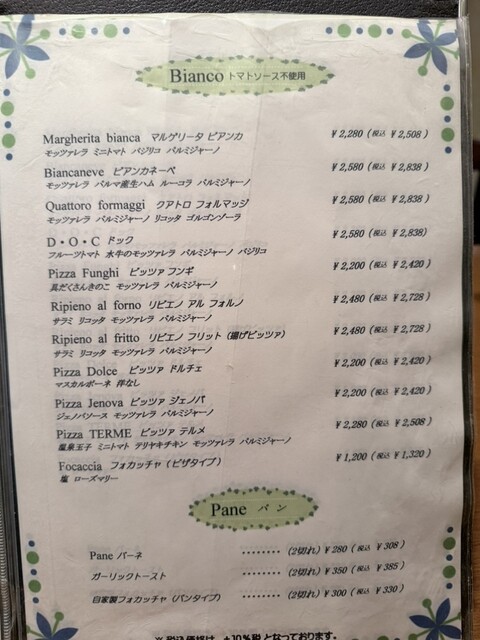 Bianco トマトソース不使用
Margherita bianca マルゲリータ ビアンカ ¥2,280 (税込 ¥2,508)
モッツァレラ ミニトマト バジリコ パルミジャーノ
Biancaneve ビアンカネーベ ¥2,580 (税込 ¥2,838)
モッツァレラ パルマ産生ハム ルーコラ パルミジャーノ
Quattoro formaggi クアトロ フォルマッジ ¥2,580 (税込 ¥2,838)
モッツァレラ パルミジャーノ リコッタ ゴルゴンゾーラ
D・O・C ドック ¥2,580 (税込 ¥2,838)
フルーツトマト 水牛のモッツァレラ パルミジャーノ バジリコ
Pizza Funghi ピッツァ フンギ ¥2,200 (税込 ¥2,420)
具だくさんきのこ モッツァレラ パルミジャーノ
Ripieno al forno リピエノ アル フォルノ ¥2,480 (税込 ¥2,728)
サラミ リコッタ モッツァレラ パルミジャーノ
Ripieno al fritto リピエノ フリット (揚げピッツァ) ¥2,480 (税込 ¥2,728)
サラミ リコッタ モッツァレラ パルミジャーノ
Pizza Dolce ピッツァ ドルチェ ¥2,200 (税込 ¥2,420)
マスカルポーネ 洋なし
Pizza Jenova ピッツァ ジェノバ ¥2,200 (税込 ¥2,420)
ジェノバソース モッツァレラ パルミジャーノ
Pizza TERME ピッツァ テルメ ¥2,280 (税込 ¥2,508)
温泉玉子 ミニトマト テリヤキチキン モッツァレラ パルミジャーノ
Focaccia フォカッチャ (ピザタイプ) ¥1,200 (税込 ¥1,320)
塩 ローズマリー
Pane パン
Pane パーネ ········ (2切れ) ¥280 (税込 ¥308)
ガーリックトースト ········ (2切れ) ¥350 (税込 ¥385)
自家製フォカッチャ (パンタイプ) ········ (2切れ) ¥300 (税込 ¥330)
※税込価格は、+10%税となっております。